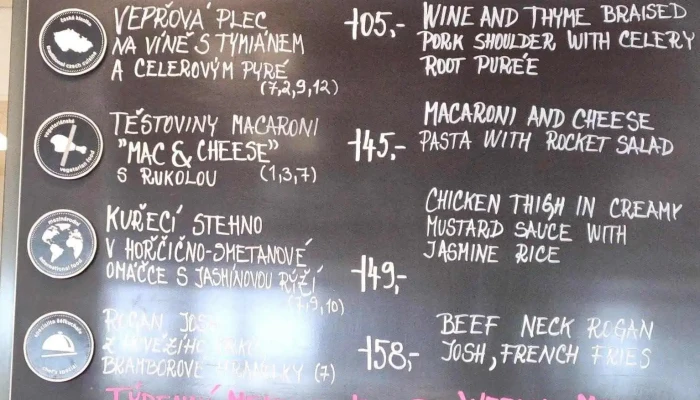 VEPŘOVÁ PLEC
NA VÍNĚ S TYMIÁNEM
A CELEROVÝM PYRÉ
(7,2,9,12)
105,-
WINE AND THYME BRAISED
PORK SHOULDER WITH CELERY
ROOT PUREÉ
TĚSTOVINY MACARONI
"MAC & CHEESE"
S RUKOLOU (1,3,7)
145,-
MACARONI AND CHEESE
PASTA WITH ROCKET SALAD
vegetariánské
vegetarian food
KUŘECÍ STEHNO
V HOŘČIČNO-SMETANOVÉ
OMÁČCE S JASMÍNOVOU RÝŽÍ
(7,9,10)
149,-
CHICKEN THIGH IN CREAMY
MUSTARD SAUCE WITH
JASMINE RICE
mezinárodní
international food
ROGAN JOSH
BRAMBOROVÉ HRANOLKY (7)
158,-
BEEF NECK ROGAN
JOSH, FRENCH FRIES